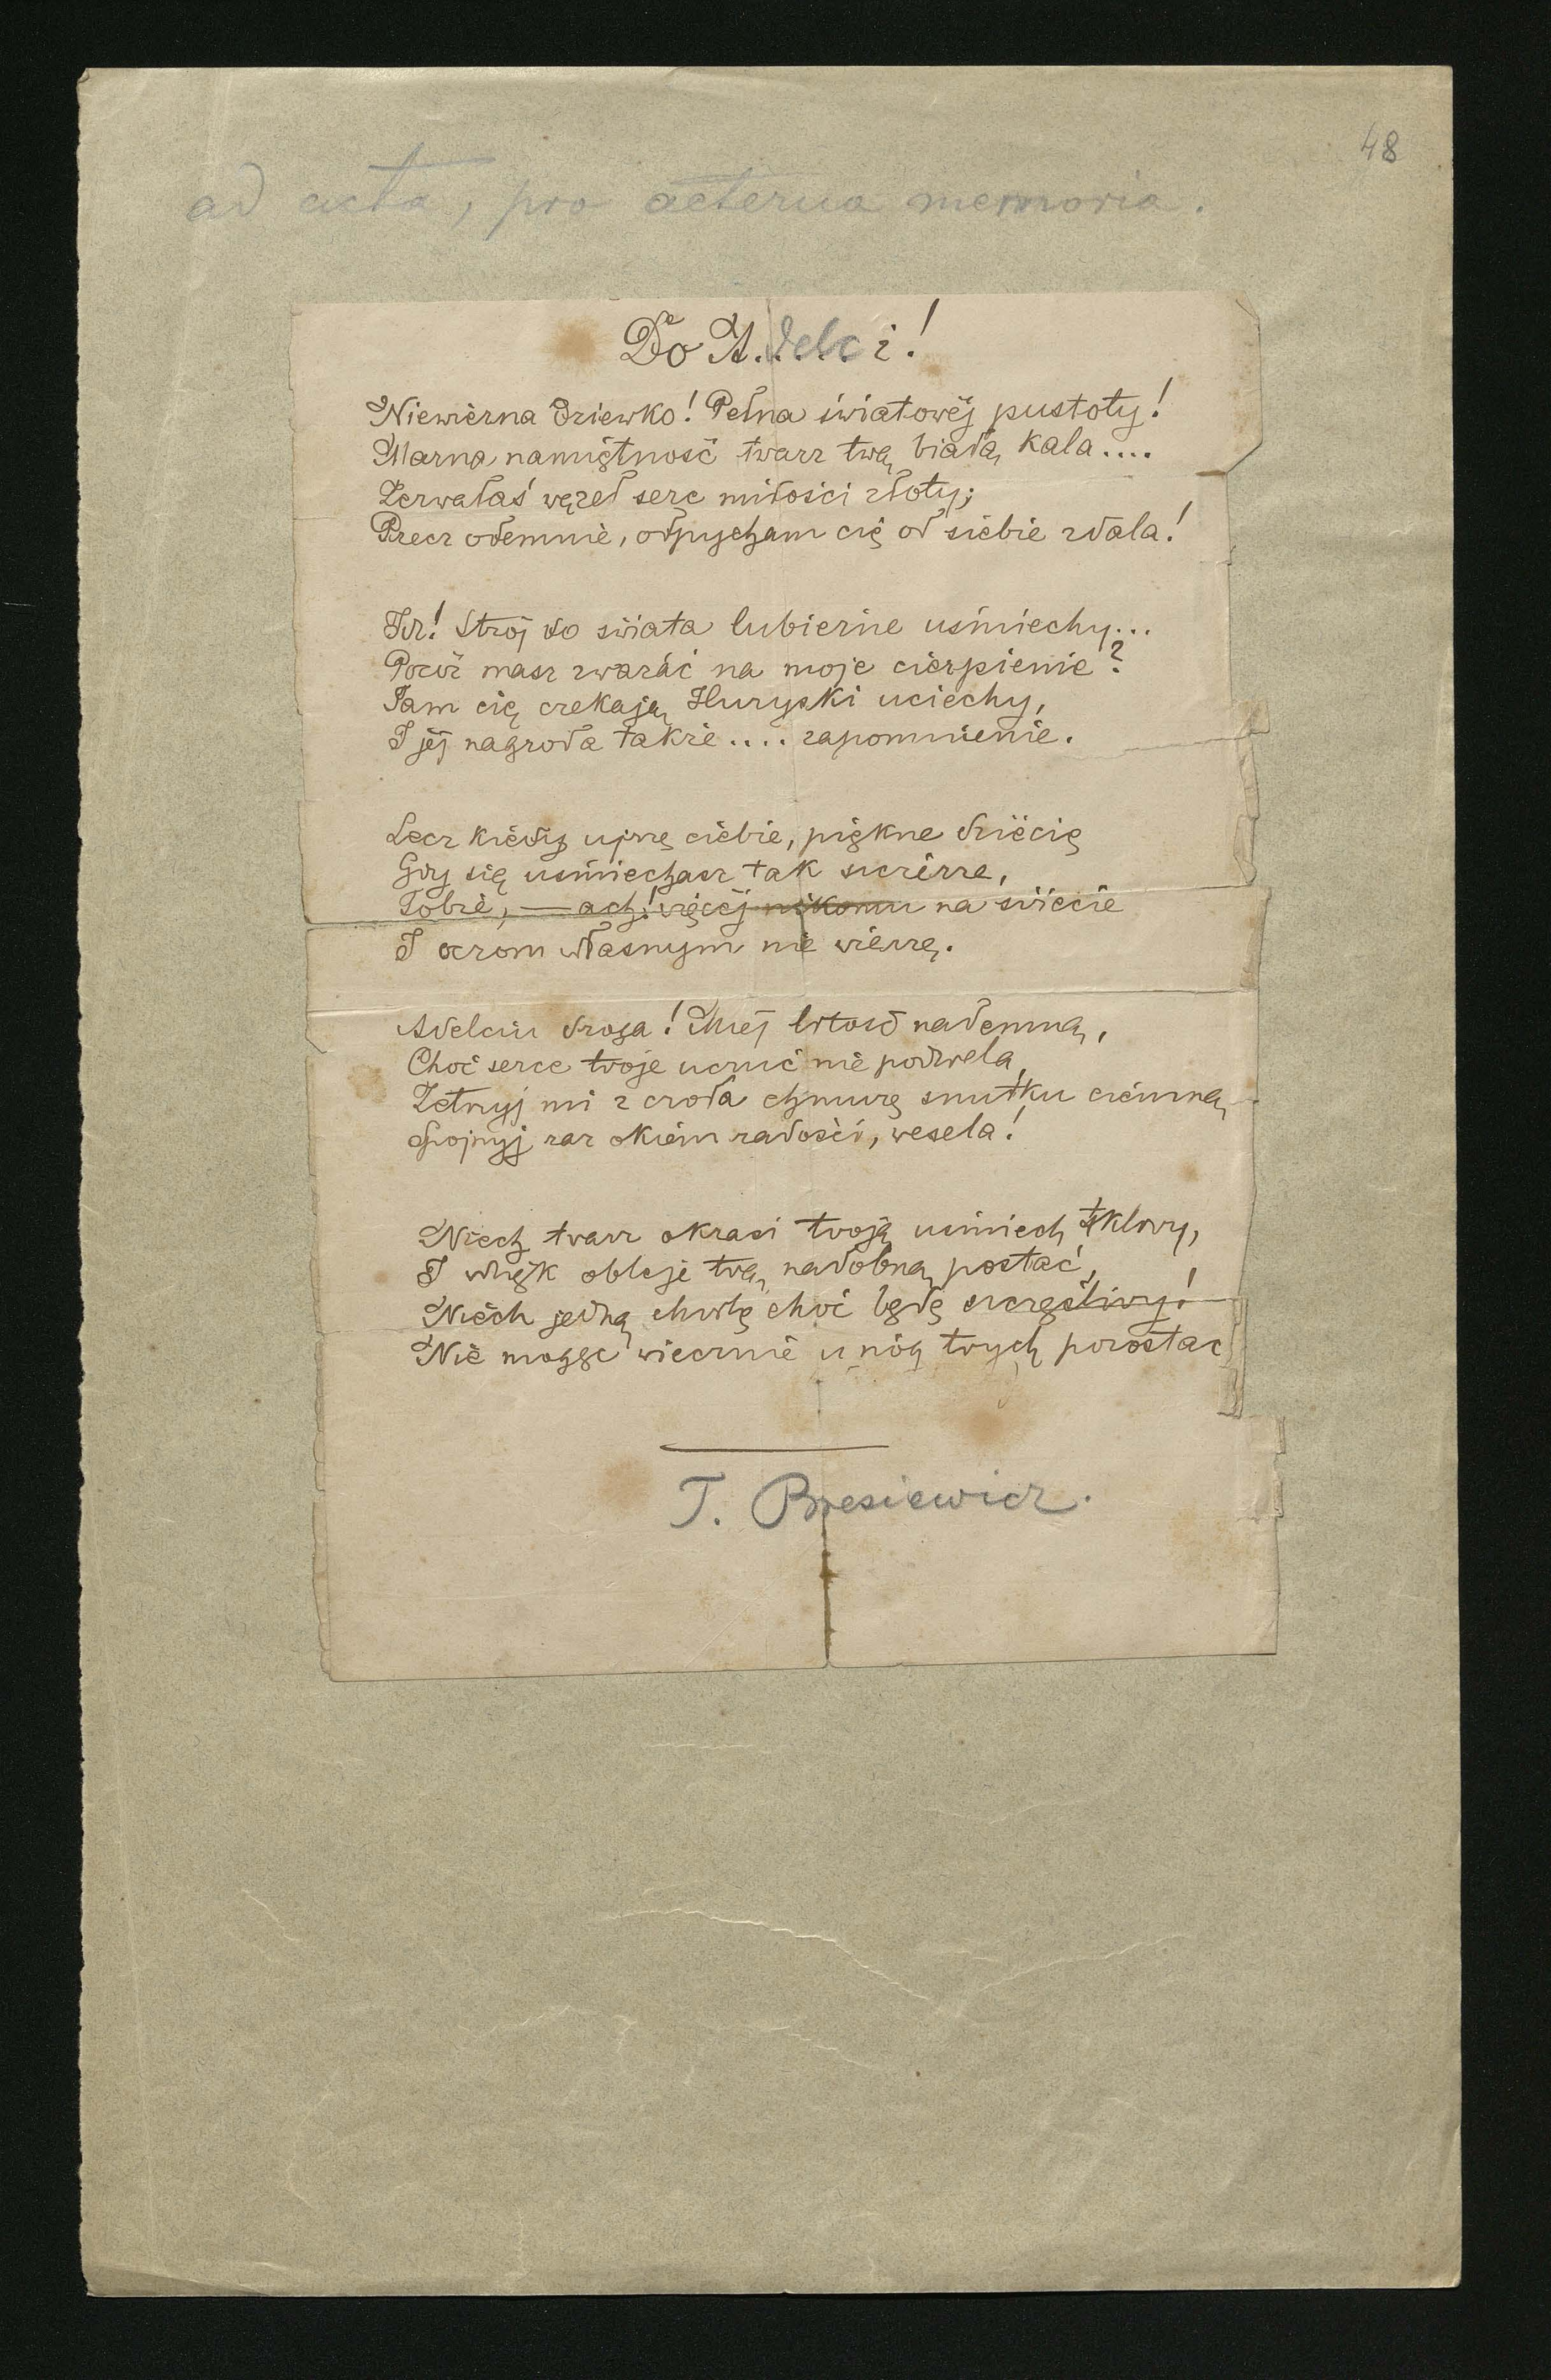 48
ad acta, pro aeterna memoria.
Do A.delci!
Niewierna dziewko! Pełna światowéj pustoty!
Marna namiętność twarz twą białą kala....
Zerwałaś węzeł serc miłości złoty;
Precz odemnie, odpycham cię od siebie zdala!
Idź! Strój do świata lubieżne uśmiechy...
Pocóż masz zważać na moje cierpienie?
Tam cię czekają Huryski uciechy,
I jéj nagroda także.... zapomnienie.
Lecz kiedy ujrzę ciebie, piękne dziécię
Gdy się uśmiechasz tak szczérze,
Tobie, — ach! więcéj nikomu na świécie
I oczom własnym nie wierzę.
Adelciu droga! Miéj litość nademną,
Choć serce twoje uczuć nie podziela,
Zetrzyj mi z czoła chmurę smutku ciemną,
Spojrzyj raz okiem radości, wesela!
Niech twarz okrasi twoją uśmiech tkliwy,
I wdzięk obleje twą nadobną postać,
Niech jedną chwilę choć będę szczęśliwy!
Nie mogąc wiecznie u nóg twych pozostać
T. Bresiewicz.